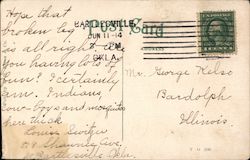 Hope that
broken leg
is all right. Are
you having lots of
fun? I certainly
am. Indians,
cow-boys and mosquitoes
here thick
Louis Switzer
Shawnee Ave.
Bartlesville Okla.
Post Card
BARTLESVILLE
JUN 11-14
OKLA.
Mr. George Kelso
Bardolph
Illinois